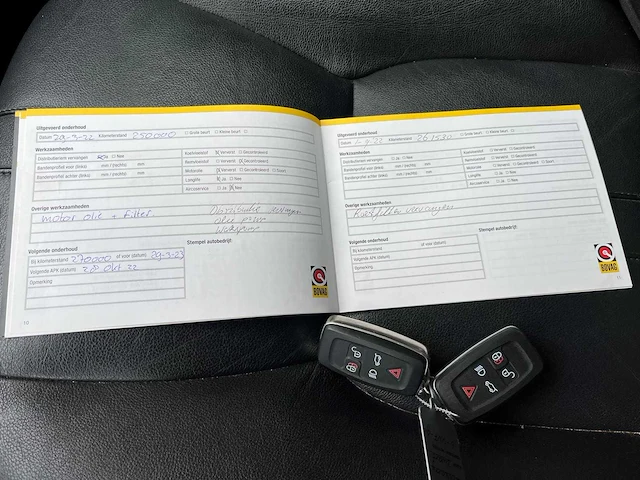 Uitgevoerd onderhoud
Datum 29-3-22 Kilometerstand 250.000 Grote beurt Kleine beurt
Werkzaamheden
Distributieriem vervangen Ja Nee
Bandenprofiel voor (links) mm / (rechts) mm
Bandenprofiel achter (links) mm / (rechts) mm
Koelvloeistof Ververst Gecontroleerd
Remvloeistof Ververst Gecontroleerd
Motorolie Ververst Gecontroleerd Soort:
Longlife Ja Nee
Aircoservice Ja Nee
Overige werkzaamheden
motor olie + filter
Distributie vervangen
olie pomp
Volgende onderhoud
Bij kilometerstand 270000 of voor (datum) 29-3-23
Volgende APK (datum) 28 okt 22
Opmerking
Stempel autobedrijf:
BOVAG
10
Uitgevoerd onderhoud
Datum Kilometerstand Grote beurt Kleine beurt
Werkzaamheden
Distributieriem vervangen Ja Nee
Bandenprofiel voor (links) mm / (rechts) mm
Bandenprofiel achter (links) mm / (rechts) mm
Koelvloeistof Ververst Gecontroleerd
Remvloeistof Ververst Gecontroleerd
Motorolie Ververst Gecontroleerd Soort:
Longlife Ja Nee
Aircoservice Ja Nee
Overige werkzaamheden
vervangen
Volgende onderhoud
Bij kilometerstand of voor (datum)
Volgende APK (datum)
Opmerking
Stempel autobedrijf:
BOVAG
11